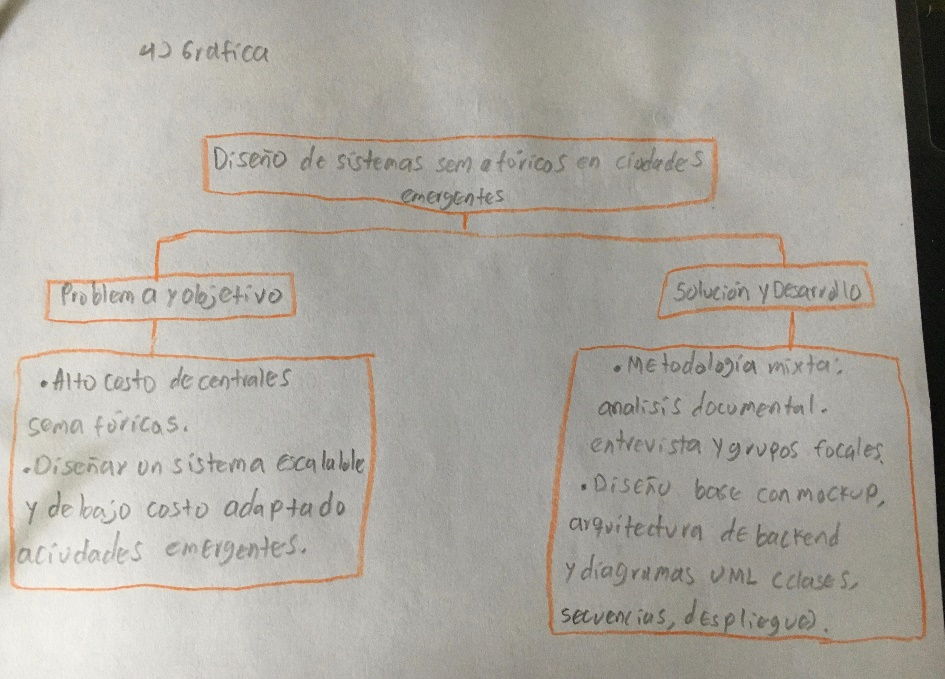 4) Gráfica
Diseño de sistemas semafóricos en ciudades
emergentes
Problema y objetivo
• Alto costo de centrales
semafóricas.
• Diseñar un sistema escalable
y de bajo costo adaptado
a ciudades emergentes.
Solución y Desarrollo
• Metodología mixta:
analisis documental.
entrevista y grupos focales.
• Diseño base con mockup,
arquitectura de backend
y diagramas UML (clases,
secuencias, despliegue).